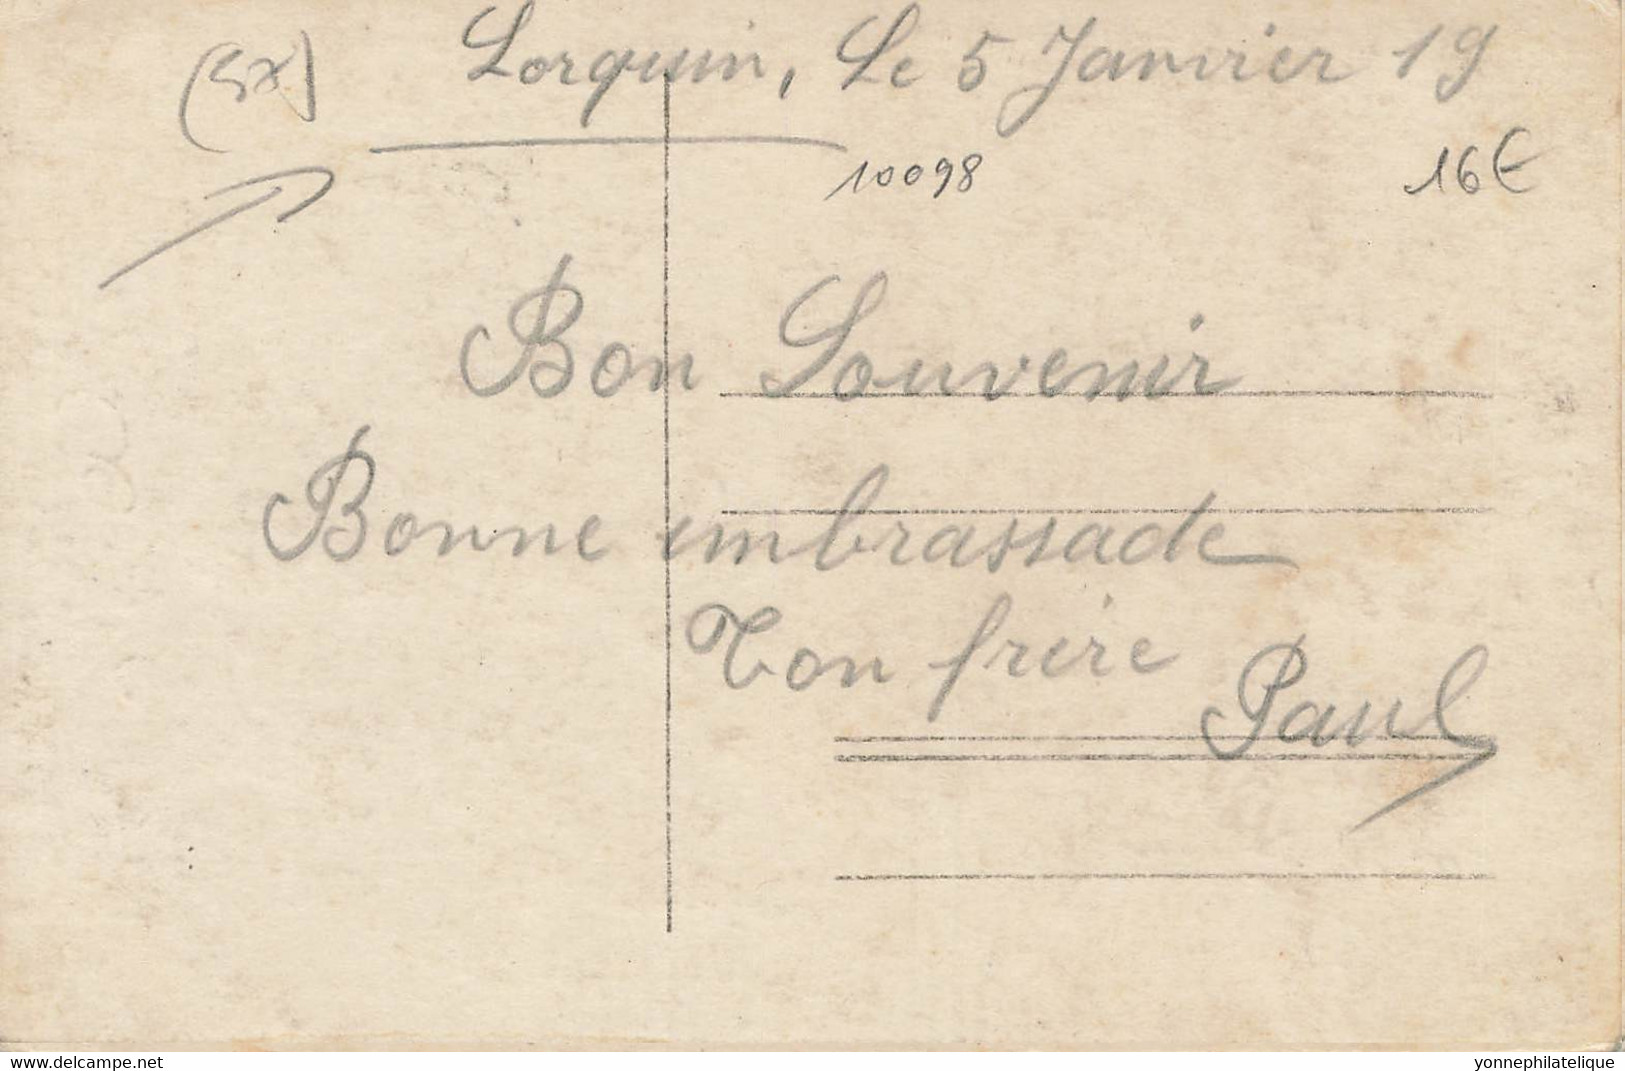 (57) Lorquin, Le 5 Janvier 19
10098 16€
Bon Souvenir
Bonne embrassade
Ton frère
Paul
www.delcampe.net yonnephilatelique